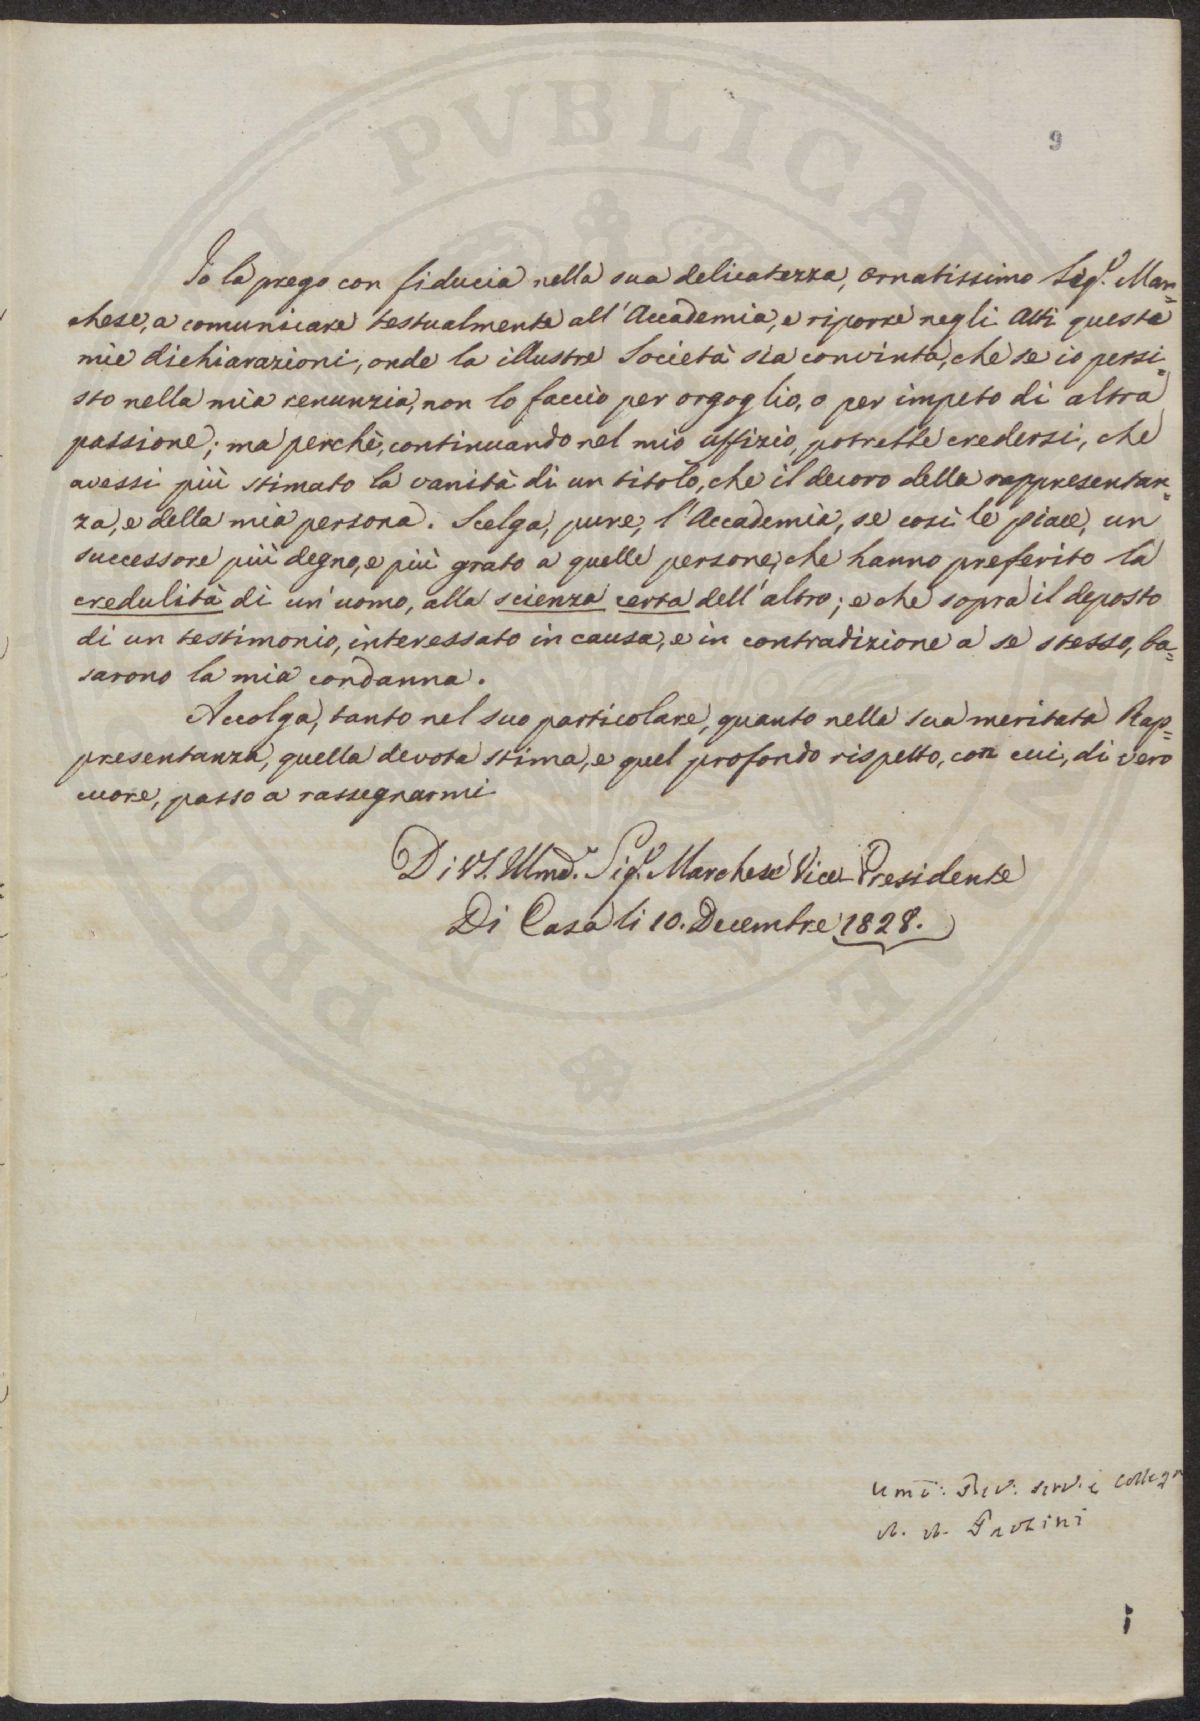 9
Io la prego con fiducia nella sua delicatezza, ornatissimo Sig.r Mar=
chese, a comunicare testualmente all'Accademia, e riporre negli Atti queste
mie dichiarazioni, onde la illustre Società sia convinta, che se io persi=
sto nella mia renunzia, non lo faccio per orgoglio, o per impeto di altra
passione; ma perchè, continuando nel mio uffizio, potrebbe credersi, che
avessi più stimato la vanità di un titolo, che il decoro della rappresentan=
za, e della mia persona. Scelga, pure, l'Accademia, se così le piace, un
successore più degno, e più grato a quelle persone, che hanno preferito la
credulità di un'uomo, alla scienza certa dell'altro; e che sopra il deposto
di un testimonio, interessato in causa, e in contradizione a se stesso, ba=
sarono la mia condanna.
Accolga, tanto nel suo particolare, quanto nella sua meritata Rap=
presentanza, quella devota stima, e quel profondo rispetto, con cui, di vero
cuore, passo a rassegnarmi
Di VS. Illmã. Sig.r Marchese Vice-Presidente
Di Casa li 10. Decembre 1828.
Umõ: Dev: serv. e Collega
A. A. Paolini
PUBLICAE